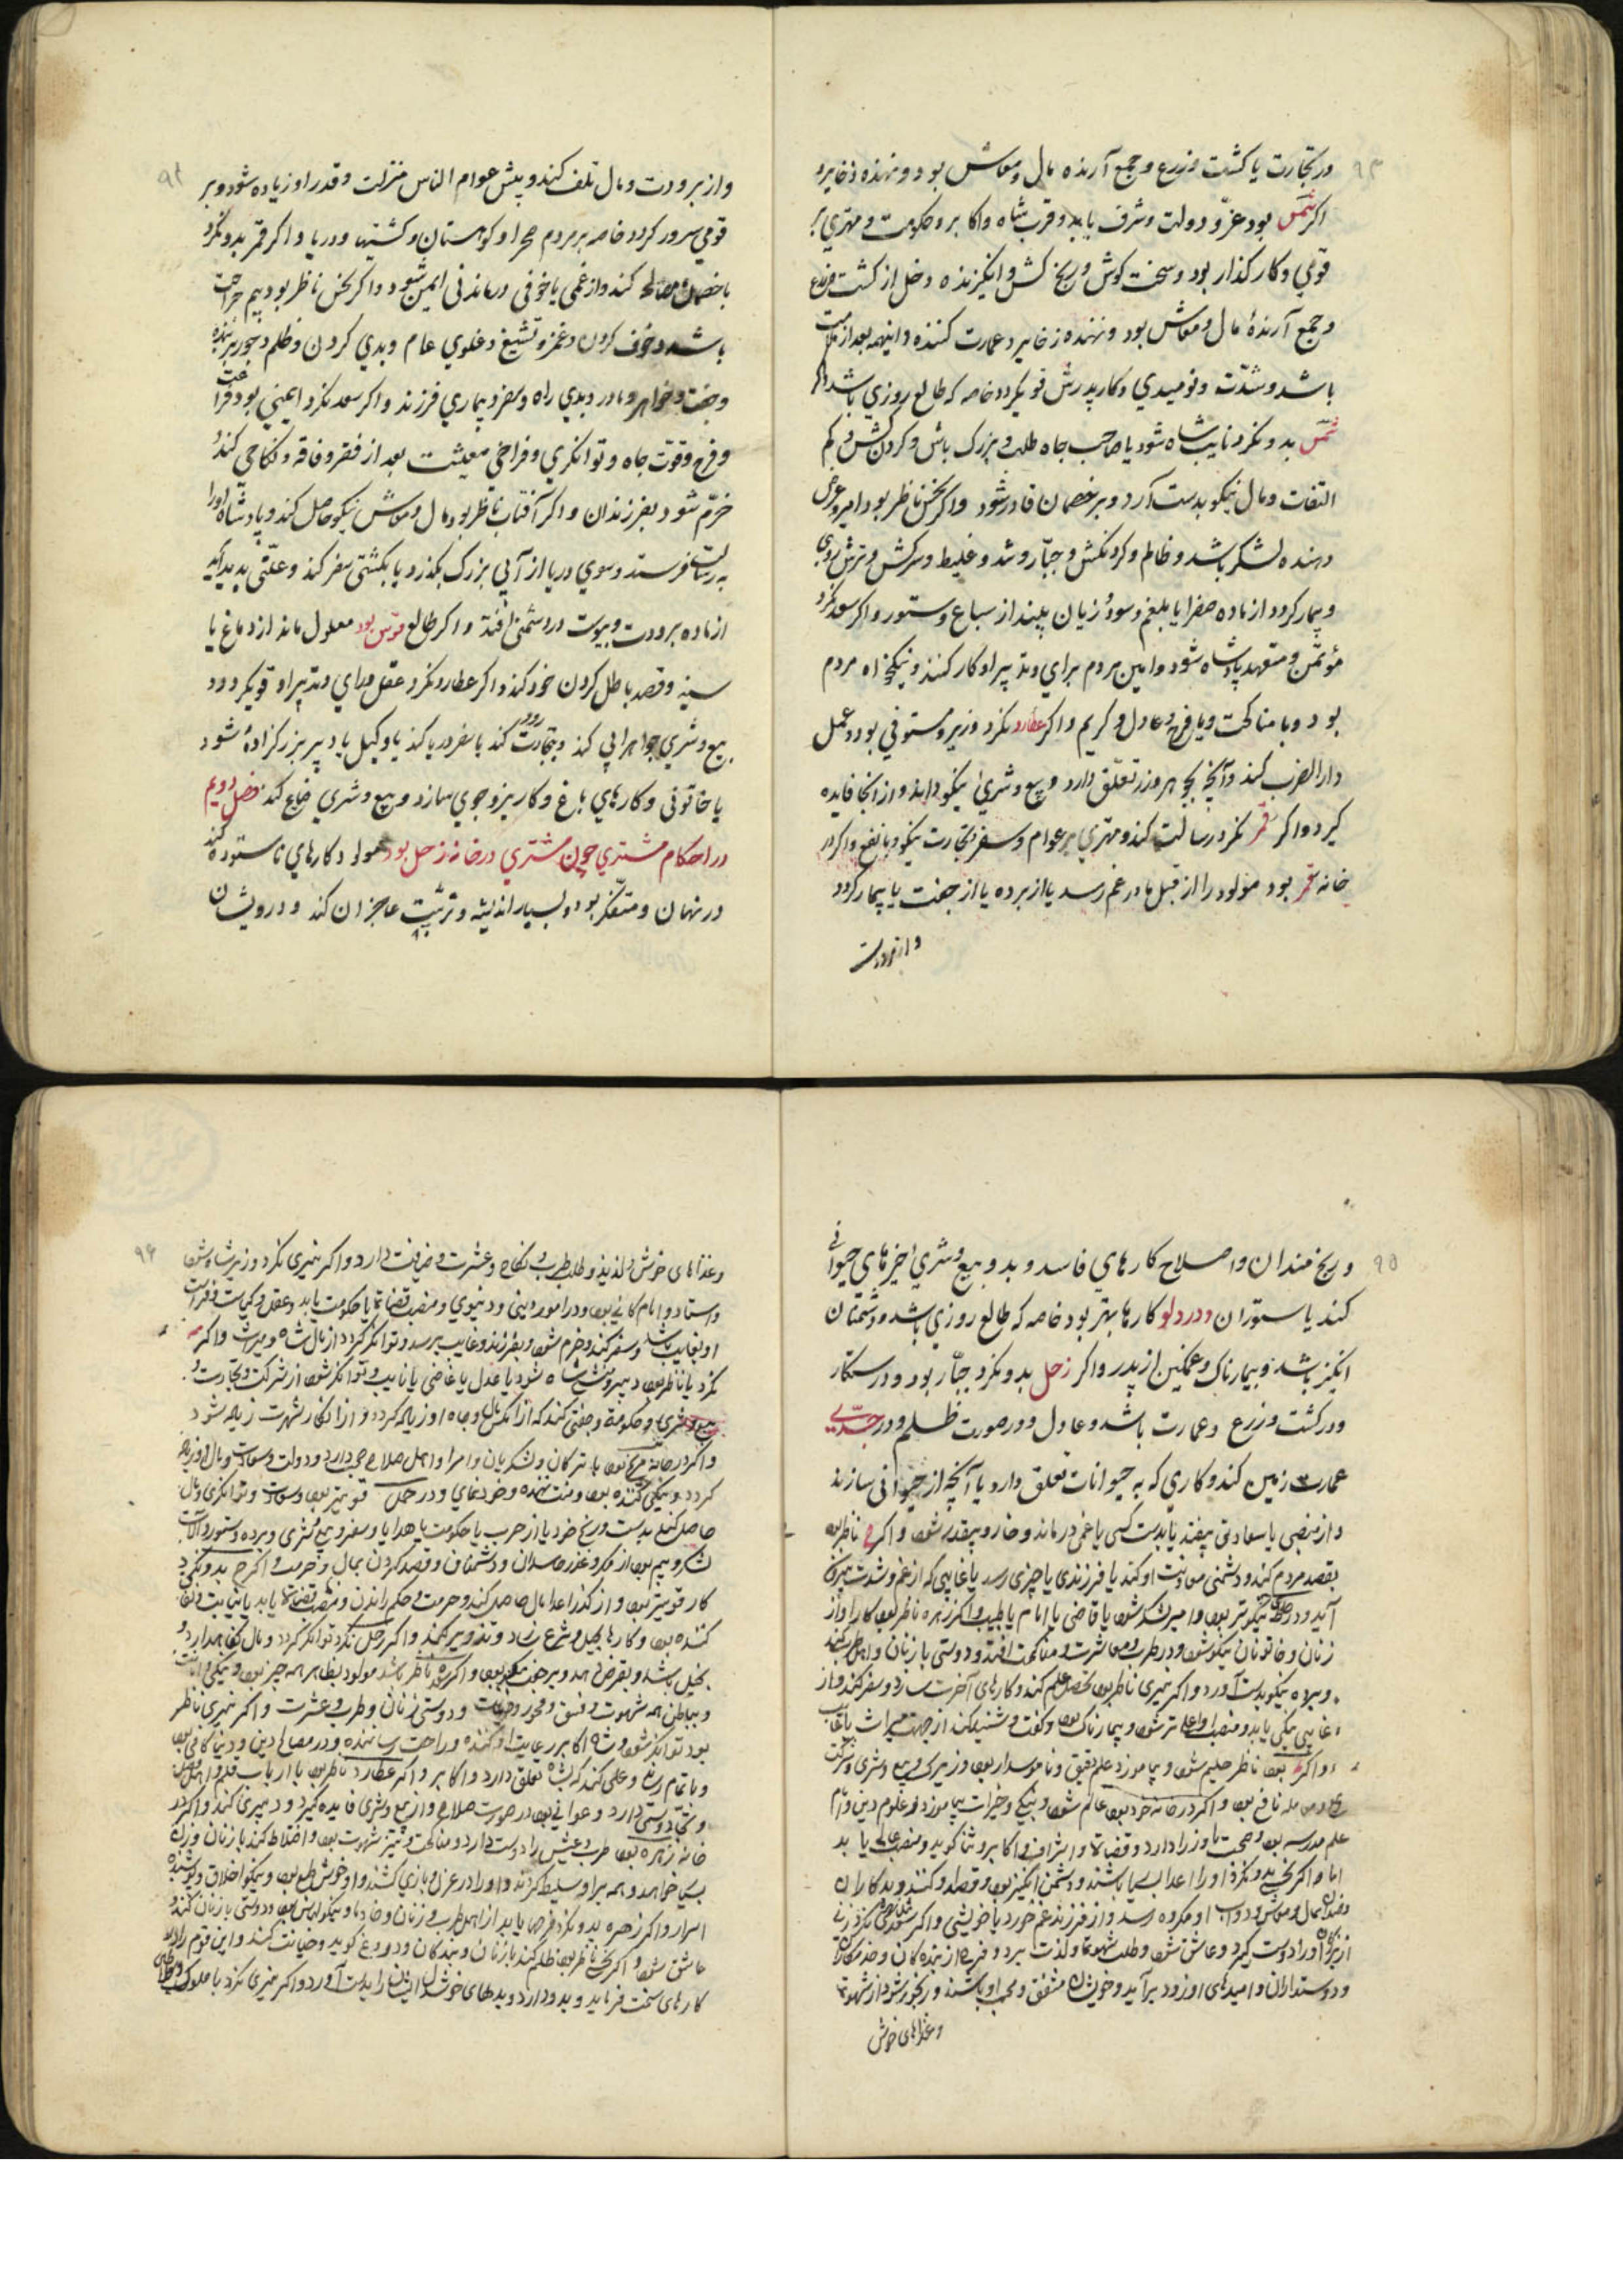 ۹۳
در تجارت یا کشت و زرع و جمع آرنده مال و معاش بود و نهنده ذخایر و
اکر شمس بود عزّ و دولت و شرف یابد و قرب شاه و اکابر و حکومت و مهتری بر
قومی و کار کذار بود و سخت کوش و رنج کش و انکیزنده و دخل از کشت و زرع
و جمع آرندهٔ مال و معاش بود و نهنده زخایر و عمارت کننده و اینهمه بعد از ملامت
باشد و شدّت و نومیدی و کار پدرش قوی کردد خاصه که طالع روزی باشد و اکر
شمس بدو نکرد نایب شاه شود یا صاحب جاه طلب و بزرک باش و کردن کش و کم
التفات و مال نیکو بدست آرد و بر خصمان قادر شود و اکر نحس ناظر بود امیر و عرض
دهنده لشکر باشد و ظالم و کردنکش و جبّار و تند و غلیظ و سرکش و ترش روی
و بیمار کردد از ماده صفرا یا بلغم و سودا و زیان بیند از سباع و ستور و اکر سعد نکرد
مؤتمن و متعهد پادشاه شود و امین مردم برای و تدبیر او کار کنند و نیکخواه مردم
بود و با مناکحت و با فرح و عادل و کریم و اکر عطارد نکرد وزیر و مستوفی بود و عمل
دار الضرب کند و آنچه بجوهر و زر تعلّق دارد و بیع و شری نیکو داند و از آنجا فایده
کیرد و اکر قمر نکرد رسالت کند و مهتری بر عوام و سفر و تجارت نیکو و با نفع و اکر در
خانه قمر بود مولود را از قبل مادر غم رسد یا از برده یا از جفت یا بیمار کردد
و از برودت
۹۴
و از برودت و مال تلف کند و پیش عوام الناس منزلت و قدر او زیاده شود و بر
قومی سرور کردد خاصه بر مردم صحرا و کوهستان و کشتیها و دریا و اکر قمر بدو نکرد
با خصمان مصالحه کند و از غمی یا خوفی درماندنی ایمن شود و اکر نحس ناظر بود بیم جراحت
باشد و خوف کردن و غمز و تشنیع و غلوی عام و بدی کردن و ظلم و جور بر بنده
و جفت و خواهر و مادر و بدی راه و سفر و بیماری فرزند و اکر سعد نکرد ایمنی بود و فراغت
و فرح و قوّت جاه و توانکری و فراخی معیشت بعد از فقر و فاقه و نکاحی کند و
خرّم شود بفرزندان و اکر آفتاب ناظر بود مال و معاش نیکو حاصل کند و پادشاه او را
به رسالت فرستد و سوی دریا از آبی بزرک بکذرد یا بکشتی سفر کند و علّتی پدید آید
از ماده برودت و یبوست و در دشمنی افتد و اکر طالع قوس بود معلول ماند از دماغ یا
سینه و قصد باطل کردن خود کند و اکر عطارد نکرد عقل و رای و تدبیر او قوی کردد و
بیع و شری جواهر آبی کند و بتجارت رود کند یا سفر دریا کند یا وکیل یا دبیر بزرکزادهٔ شود
یا خاتونی و کارهای باغ و کاریز و جوی سازد و بیع و شری ضیاع کند فصل دویم
در احکام مشتری چون مشتری در خانه زحل بود مولود کارهای ناستوده کند
در نهان و متفکر بود و بسیار اندیشه و تربیت عاجزان کند و درویشان
۹۵
و رنج مندان و اصلاح کارهای فاسد و بد و بیع و شری چیزهای حیوانی
کند یا ستوران و در دلو کارها بهتر بود خاصه که طالع روزی باشد و دشمنان
انکیز باشد و بیمارناک و غمکین از پدر و اکر زحل بدو نکرد جبّار بود و درستکار
و در کشت و زرع و عمارت باشد و عادل و در صورت ظلم و در جدی
عمارت زمین کند و کاری که به حیوانات تعلق دارد یا آنچه از حیوانی سازند
و از منصبی یا سعادتی بیفتد یا بدست کسی یا غمی درماند و خار و بیقدر شود و اکر ناظر بود
بقصد مردم کند و دشمنی معاونت او کند یا فرزندی یا چیزی رسد یا غایبی که از غم و شدت بیرون
آید و در نیکوتر بود و امیر لشکر شود یا قاضی یا امام یا طبیب و اکر زهره ناظر بود کار او از
زنان و خاتونان نیکو شود و در طرب و معاشرت و مناکحت افتد و دوستی با زنان و اهل
و براه نیکو بدست آورد و اکر نیری ناظر بود تحصیل علم کند و کارهای آخرت سازد و سفر کند و از
غایبی نیکی یابد و منصب او اعلی تر شود و بیمارناک بود و کفت و شنید کند از جهت میراث یا غایب
و اکر بود ناظر حلیم شود و بیاموزد علم دقیق و ناموسدار بود و زیرک و بیع و شری و شرکت
و معامله نافع بود و اکر در خانه خود بود عالم شود و نیکی و خیرات بیاموزد و علوم دین و امام
علم مدرسه بود و صحبت با وزرا دارد و قضات و اشراف و اکابر و ثنا کوید و منصب عالی یابد
اما و اکر نحس بدو نکرد او را اعدا بسیار باشند و دشمن انکیز بود و قصد او کنند و بد کاران
و نقصان مال و معاش و دواب او مکروه رسد و از فرزند غم خورد یا خویشی و اکر سعد نکرد زنی
از بزرکان او را دوست کیرد و عاشق شود و طلب شهوتها و لذت برد و فرح از بنده کان و خدمتکاران
و دوستداران و امیدهای او زود برآید و خویشان مشفق و محب او باشند و رنجور شود از شهوتها
و غذاهای خوش
۹۶
و غذاهای خوش و لذیذ و طلب طرب و نکاح و عشرت و ضیافت دارد و اکر نیری نکرد وزیر شاه شود
و استاد و امام کافی بود در امور دینی و دنیوی و منصب قضا یا حکومت یابد و عقل و کیاست و فراست
او بغایت باشد و سفر کند و خرم شود و بفرزند و غایب برسد و توانکر کردد از مال شاه و میراث و اکر
نکرد یا ناظر بود دبیر و منشی شاه شود یا عدل یا قاضی یا نایب و توانکر شود از شرکت و تجارت و
بیع و شری و حکومة و جفتی کند که از آن مال و جاه او زیاده کردد و از آن کار شهرت زیاده شود
و اکر در خانه مریخ بود با ترکان و لشکریان و امرا و اهل صلاح صحبت دارد و دولت و سعادت و مال او زیاده
کردد و نیکی کننده بود و منت نهنده و خود نمای و در حمل قوی تر بود و سعادت و توانکری و مال
حاصل کند بدست و رنج خود یا از حرب یا حکومت یا هدایا و سفر و بیع و شری و برده و ستور و آلات
لشکر و بیم بود از مکر و غدر حاسدان و دشمنان و قصد کردن بمال و حرمت و اکر بدو نکرد
کار قوی تر بود و از کذر اعدا مال حاصل کند و حرمت و حکم راندن و منصب قضا یابد یا نیابت و
کننده بود و کارها بحیل و شرع و فساد و تزویر کند و اکر زحل نکرد توانکر کردد و مال نکاهدارد و
بخیل باشد و بقرض دهد و بر جفت بود و اکر زهره ناظر باشد مولود بظاهر همه چیز بود و نیکی و امانت
و بباطن همه شهوت و فسق و فجور و خیانت و دوستی زنان و طرب و عشرت و اکر نیری ناظر
بود توانکر شود و شاه و اکابر رعایت او کنند و راحت رساننده و در مصالح دین و دنیا کافی بود
و با تمام رنج و عملی کند که بشاه تعلق دارد و اکابر و اکر عطارد ناظر بود با ارباب قلم و اهل
و تجار دوستی دارد و عوانی بود در صورت صلاح و از بیع و شری فایده کیرد و دبیری کند و اکر در
خانه زهره بود طرب و عیش را دوست دارد و مناکحت و تیز شهوت بود و اختلاط کند با زنان و زن
بسیار خواهد و همه بر او سلیط کردند و او را در غزل و بازی کشند و او خوش طبع بود و نیکو اخلاق و پوشنده
اسرار و اکر زهره بدو نکرد فرح یابد از اهل طرب و زنان و خادمان و نیکو لباس بود و دوستی با زنان کند و
عاشق شود و اکر نحس ناظر بود ظلم کند با زنان و بندکان و دروغ کوید و خیانت کند و این قوم را
کارهای سخت فرماید و بد و دارد و بدلهای خوش ایشان را بدست آورد و اکر نیری نکرد با ملوک